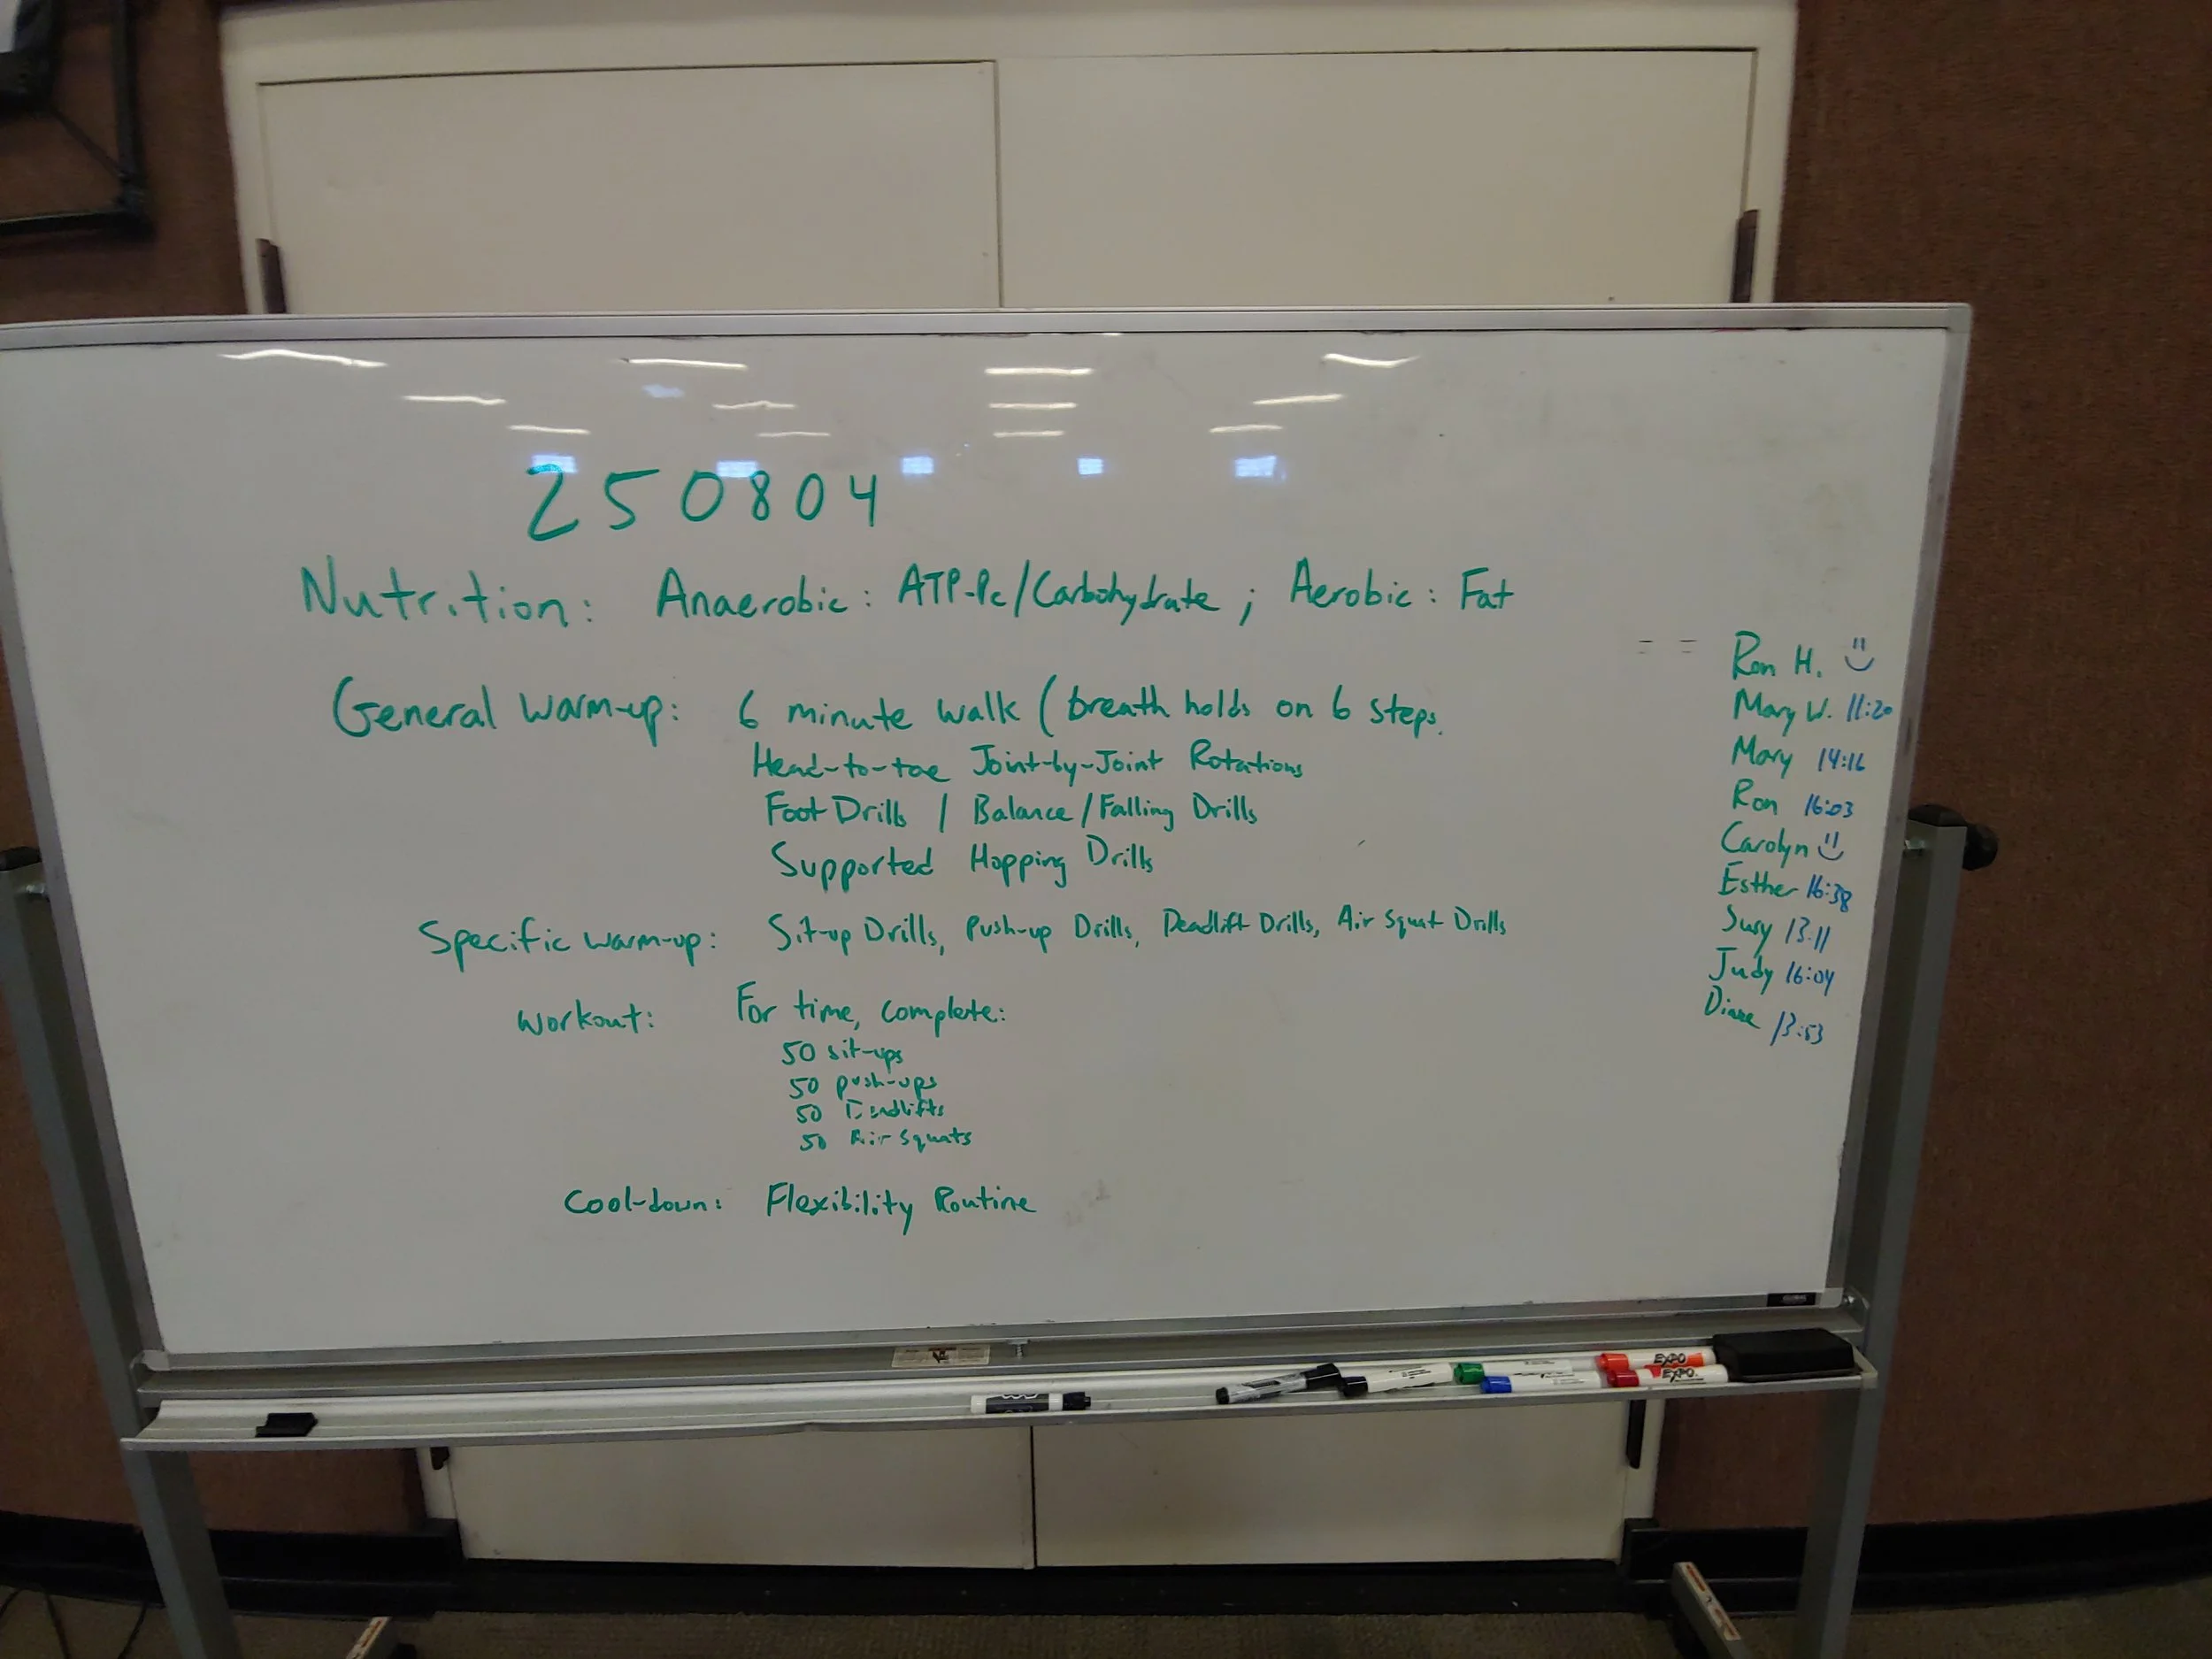 250804
Nutrition: Anaerobic: ATP-Pc/Carbohydrate; Aerobic: Fat
General Warm-up: 6 minute walk (breath holds on 6 steps.
Head-to-toe Joint-by-Joint Rotations
Foot Drills / Balance/Falling Drills
Supported Hopping Drills
Specific Warm-up: Sit-up Drills, Push-up Drills, Deadlift Drills, Air Squat Drills
Workout: For time, complete:
50 sit-ups
50 push-ups
50 Deadlifts
50 Air Squats
Cool-down: Flexibility Routine
Ron H.
Mary W. 11:20
Mary 14:16
Ron 16:03
Carolyn
Esther 16:38
Sury 13:11
Judy 16:04
Diane 13:53
GLOBAL
EXPO
EXPO